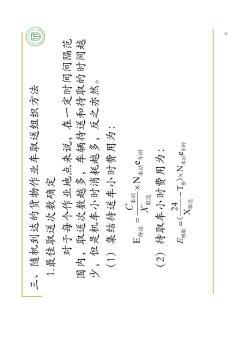 三、随机到达的货物作业车取送组织方法
1.最佳取送次数确定
对于每个作业地点来说，在一定时间间隔范
围内，取送次数越多，车辆待送和待取的时间越
少，但是机车小时消耗越多，反之亦然。
（1）集结待送车小时费用为：
E待送 = C本站/X取送 × N本站e车时
（2）待取车小时费用为：
E待取 = (24/X取送 − T货) × N本站e车时